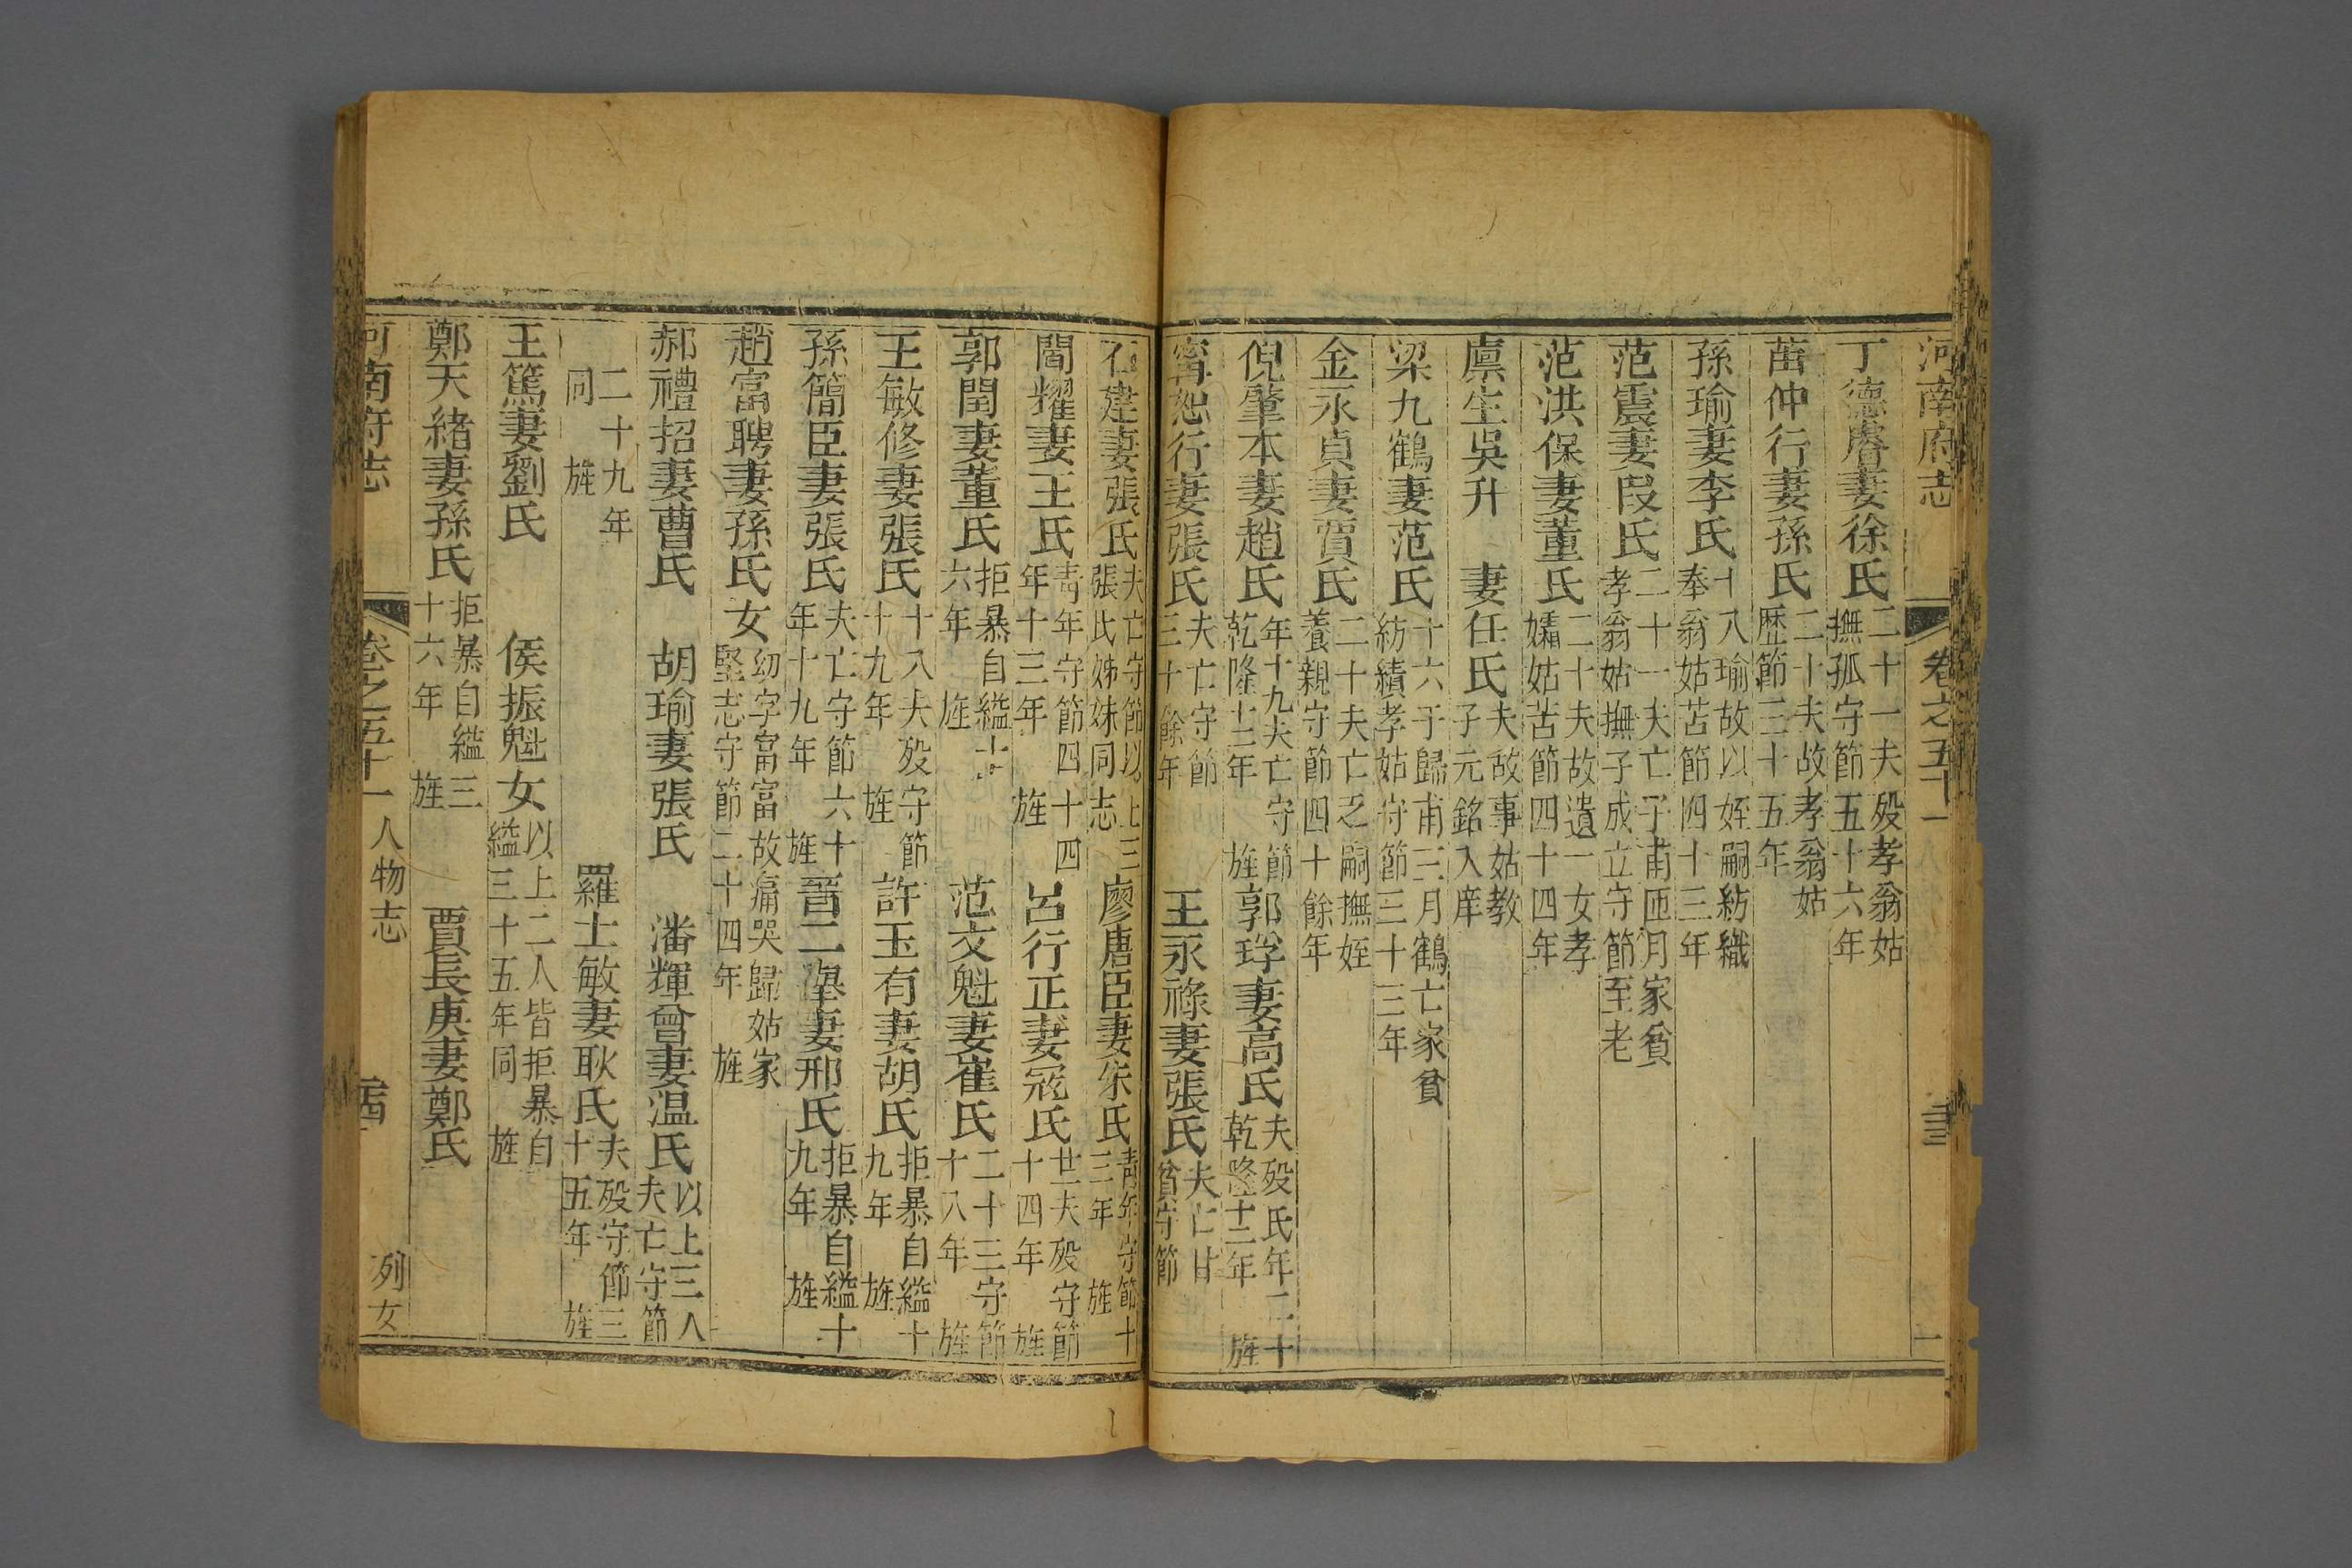 河南府志
卷之五十一
丁德睿妻徐氏 二十一夫歿孝翁姑撫孤守節五十六年
苗仲行妻孫氏 二十夫故孝翁姑歷節三十五年
孫瑜妻李氏 十八瑜故以姪嗣紡織奉翁姑苦節四十三年
范震妻段氏 二十一夫亡子甫匝月家貧孝翁姑撫子成立守節至老
范洪保妻董氏 二十夫故遺一女孝孀姑苦節四十四年
廩生吳升 妻任氏 夫故事姑教子元銘入庠
梁九鶴妻范氏 十六于歸甫三月鶴亡家貧紡績孝姑守節三十三年
金永貞妻賈氏 二十夫亡乏嗣撫姪養親守節四十餘年
倪肇本妻趙氏 年十九夫亡守節乾隆十二年旌 郭玶妻高氏 夫歿氏年二十乾隆十二年旌
甯恕行妻張氏 夫亡守節三十餘年 王永祿妻張氏 夫亡甘貧守節
建妻張氏 夫亡守節以上三張氏姊妹同志 廖唐臣妻朱氏 青年守節十三年旌
閻耀妻王氏 青年守節四十四年十三年旌 呂行正妻寇氏 廿夫歿守節十四年旌
郭閏妻董氏 拒暴自縊十六年旌 范文魁妻崔氏 二十三守節十八年旌
王敏修妻張氏 十八夫歿守節十九年旌 許玉有妻胡氏 拒暴自縊十九年旌
孫簡臣妻張氏 夫亡守節六十年十九年旌 晉二舉妻邢氏 拒暴自縊十九年旌
趙富聘妻孫氏女 幼字富富故痛哭歸姑家堅志守節二十四年旌
郝禮招妻曹氏 胡瑜妻張氏 潘輝曾妻溫氏 以上三人夫亡守節
二十九年同旌 羅士敏妻耿氏 夫歿守節三十五年旌
王篤妻劉氏 侯振魁女 以上二人皆拒暴自縊三十五年同旌
鄭天緒妻孫氏 拒暴自縊三十六年旌 賈長庚妻鄭氏
河南府志 卷之五十一 人物志 列女